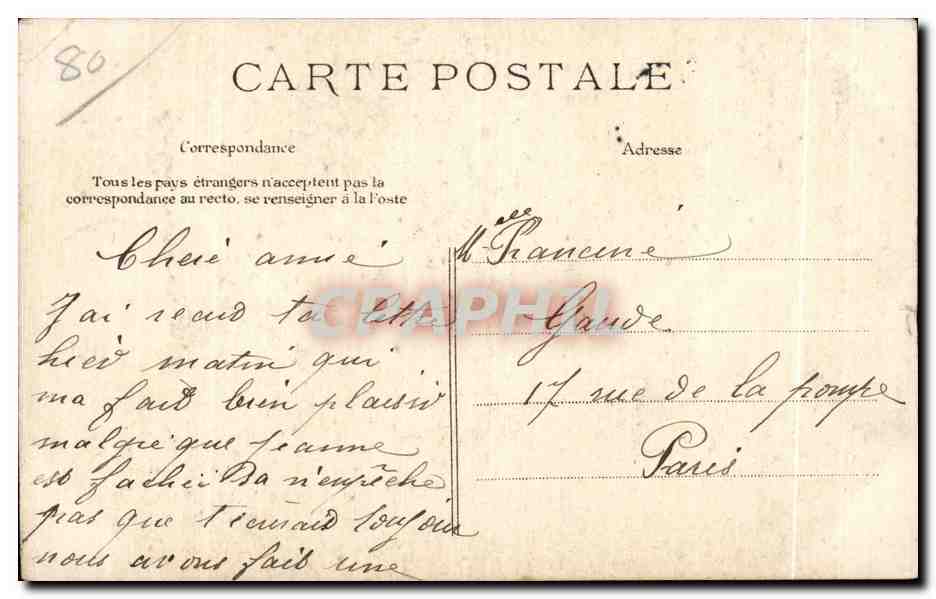 80
CARTE POSTALE
Correspondance
Tous les pays étrangers n'acceptent pas la
correspondance au recto, se renseigner à la Poste
Adresse
Cheré amié
J'ai recut ta lettre
hier matin qui
ma fait bien plaisir
malgré que Jeanne
est fachéé sa n'empêche
pas que t'écrirait toujour
nous avons fait une
Melle Francine
Gaude
17 rue de la pompe
Paris
CPAPHIL